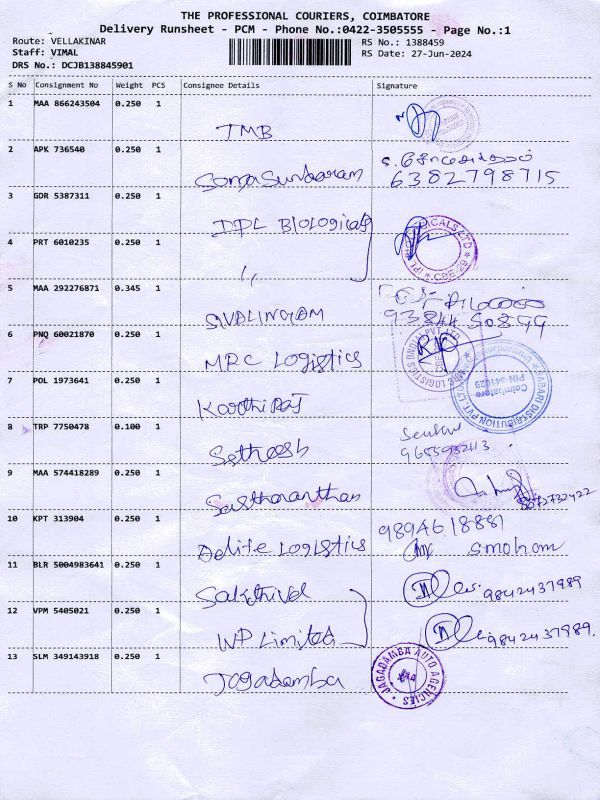 THE PROFESSIONAL COURIERS, COIMBATORE
Delivery Runsheet - PCM - Phone No.:0422-3505555 - Page No.:1
Route: VELLAKINAR
Staff: VIMAL
DRS No.: DCJB138845901
RS No.: 1388459
RS Date: 27-Jun-2024
S No Consignment No Weight PCS Consignee Details Signature
1 MAA 866243504 0.250 1
TMB
2 APK 736540 0.250 1
SomaSundaram 6382798715
3 GDR 5387311 0.250 1
IPL Biologicals
4 PRT 6010235 0.250 1
〃
CBE-29
5 MAA 292276871 0.345 1
SIVALINGAM 93844 50899
6 PNQ 60021870 0.250 1
MRC Logistics
7 POL 1973641 0.250 1
KarthiRaj
Coimbatore
8 TRP 7750478 0.100 1
Satheesh
9 MAA 574418289 0.250 1
10 KPT 313904 0.250 1
9894618881
Delite Logistics smoham
11 BLR 5004983641 0.250 1
Sakthivel 9842437989
12 VPM 5405021 0.250 1
WP Limited 9842437989.
13 SLM 349143918 0.250 1
Jagadamba
JAGADAMBA AUTO AGENCIES